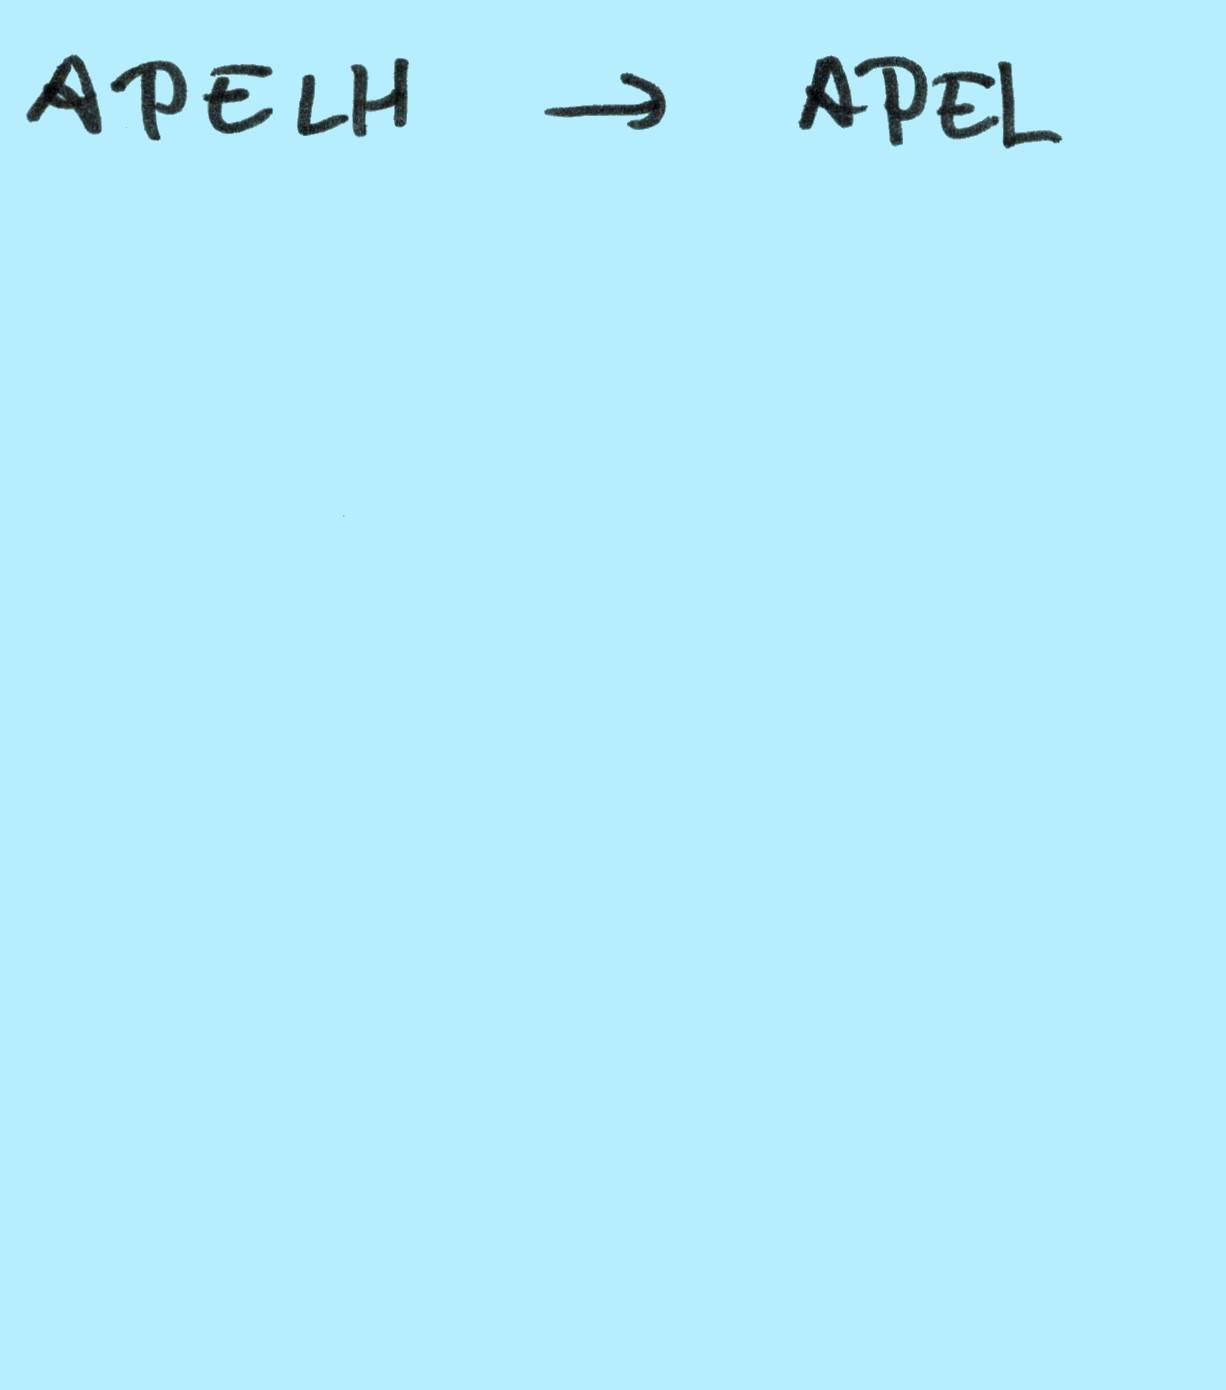 APELH → APEL